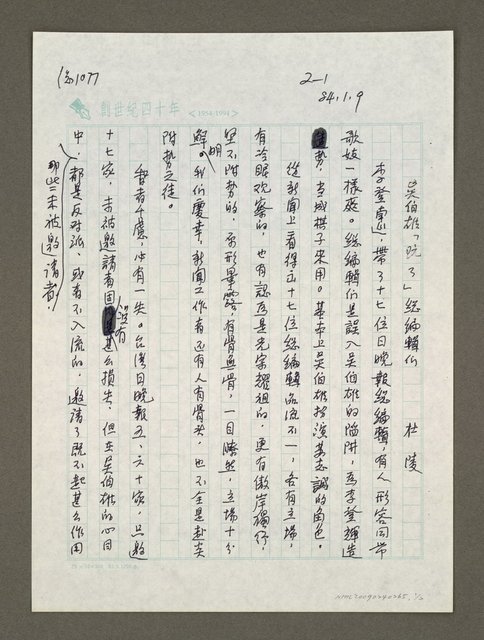 (總1077
2-1
84.1.9
創世紀四十年 <1954-1994>
吳伯雄「玩了」總編輯們
杜陵
李登輝南巡,帶了十七位日晚報總編輯,有人形容同帶
歌妓一樣處。總編輯們是誤入吳伯雄的陷阱,為李登輝造
勢,當成棋子來用。基本上吳伯雄扮演著的角色。
從新聞上看得出十七位總編輯品流不一,各有立場,
有冷眼观察的,也有認為是光宗耀祖的,更有傲岸獨行,
堅不附勢的,原形畢露,有骨無骨,一目瞭然,立場十分
鮮明。我們慶幸,新聞工作者还有人有骨头,也不全是趨炎
附势之徒。
智者千慮,必有一失。台灣日晚報五、六十家,只邀
十七家,未被邀請者固沒有甚么損失,但在吳伯雄的心目
中,那些未被邀請者,都是反对派,或者不入流的,邀請了既不起甚么作用
25×12=300
NMTL20090240265, 1/2